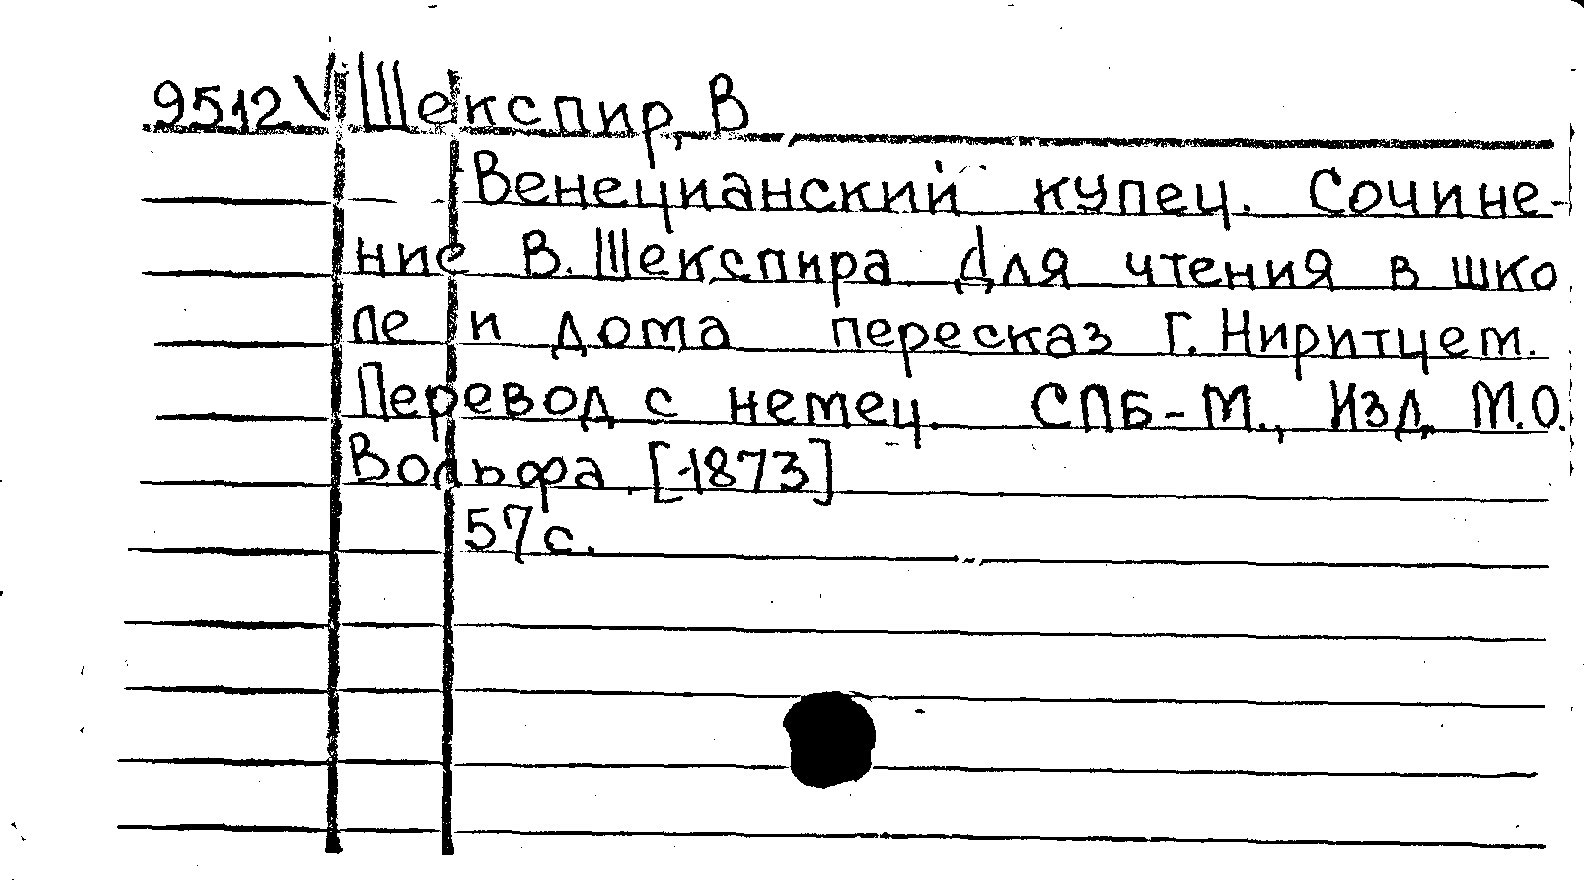 9512 V Шекспир, В
Венецианский купец. Сочине-
ние В. Шекспира для чтения в шко
ле и дома пересказ Г. Ниритцем.
Перевод с немец. СПБ-М., Изд. М.О.
Вольфа [1873]
57с.